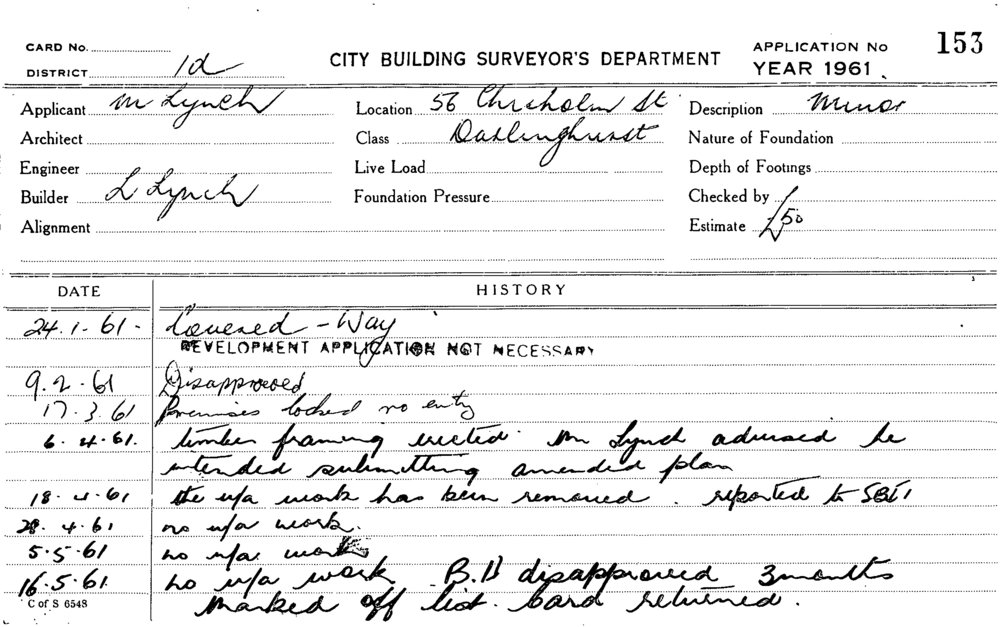 CARD No.
DISTRICT 1d
CITY BUILDING SURVEYOR'S DEPARTMENT
APPLICATION No 153
YEAR 1961.
Applicant M Lynch
Location 56 Chisholm St
Description Minor
Architect
Class Darlinghurst
Nature of Foundation
Engineer
Live Load
Depth of Footings
Builder L Lynch
Foundation Pressure
Checked by
Alignment
Estimate £50
DATE HISTORY
24.1.61. Covered - Way
DEVELOPMENT APPLICATION NOT NECESSARY
9.2.61 Disapproved
17.3.61 Premises locked no entry
6.4.61. timber framing erected. Mr Lynch advised he
intended submitting amended plan
18.4.61 the u/a work has been removed. reported to SBI
28.4.61 no u/a work.
5.5.61 no u/a work
16.5.61 no u/a work. B.A disapproved 3 months
Marked off list. Card returned.
C of S 6548